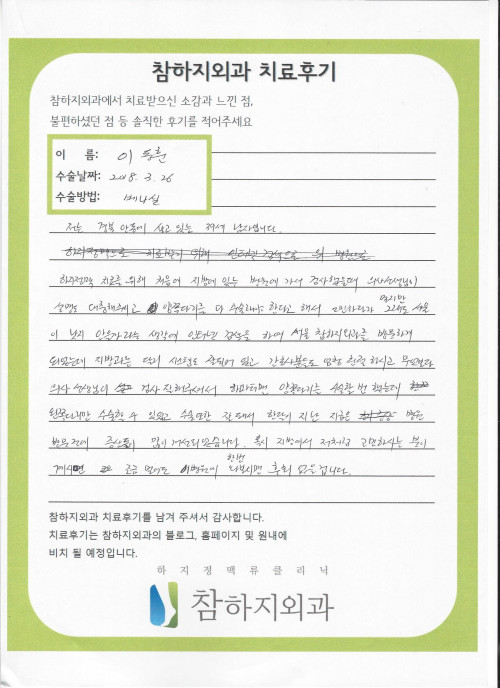 참하지외과 치료후기
참하지외과에서 치료받으신 소감과 느낀 점,
불편하셨던 점 등 솔직한 후기를 적어주세요
이 름: 이
수술날짜: 2018. 3. 26
수술방법: 베나실
저는 경북 안동에 살고 있는 39세 남자입니다.
하지정맥으로 치료받기 위해 인터넷 검색으로 위 병원으로
하지정맥 치료를 위해 처음에 지방에 있는 병원에 가서 검사했을때 의사선생님이
설명도 대충해주시고 양쪽다리를 다 수술해야 한다고 해서 고민하다가 그래도 서울
이 낫지 않을까라는 생각에 인터넷 검색을 하여 서울 참하지외과를 방문하게
되었는데 지방과는 달리 시스템도 잘되어 있고 간호사분들도 엄청 친절하시고 무엇보다
의사선생님이 검사 직접해주셔서 하마터면 양쪽다리를 수술할 뻔 했는데
왼쪽다리만 수술할 수 있었고 수술또한 잘 되서 한달이 지난 지금은 병원
방문전에 증상들이 많이 개선되었습니다. 혹시 지방에서 저처럼 고민하시는 분이
계시면 조금 멀어도 이병원에 한번 와보시면 후회 없을 겁니다.
참하지외과 치료후기를 남겨 주셔서 감사합니다.
치료후기는 참하지외과의 블로그, 홈페이지 및 원내에
비치 될 예정입니다.
하지정맥류클리닉
참하지외과